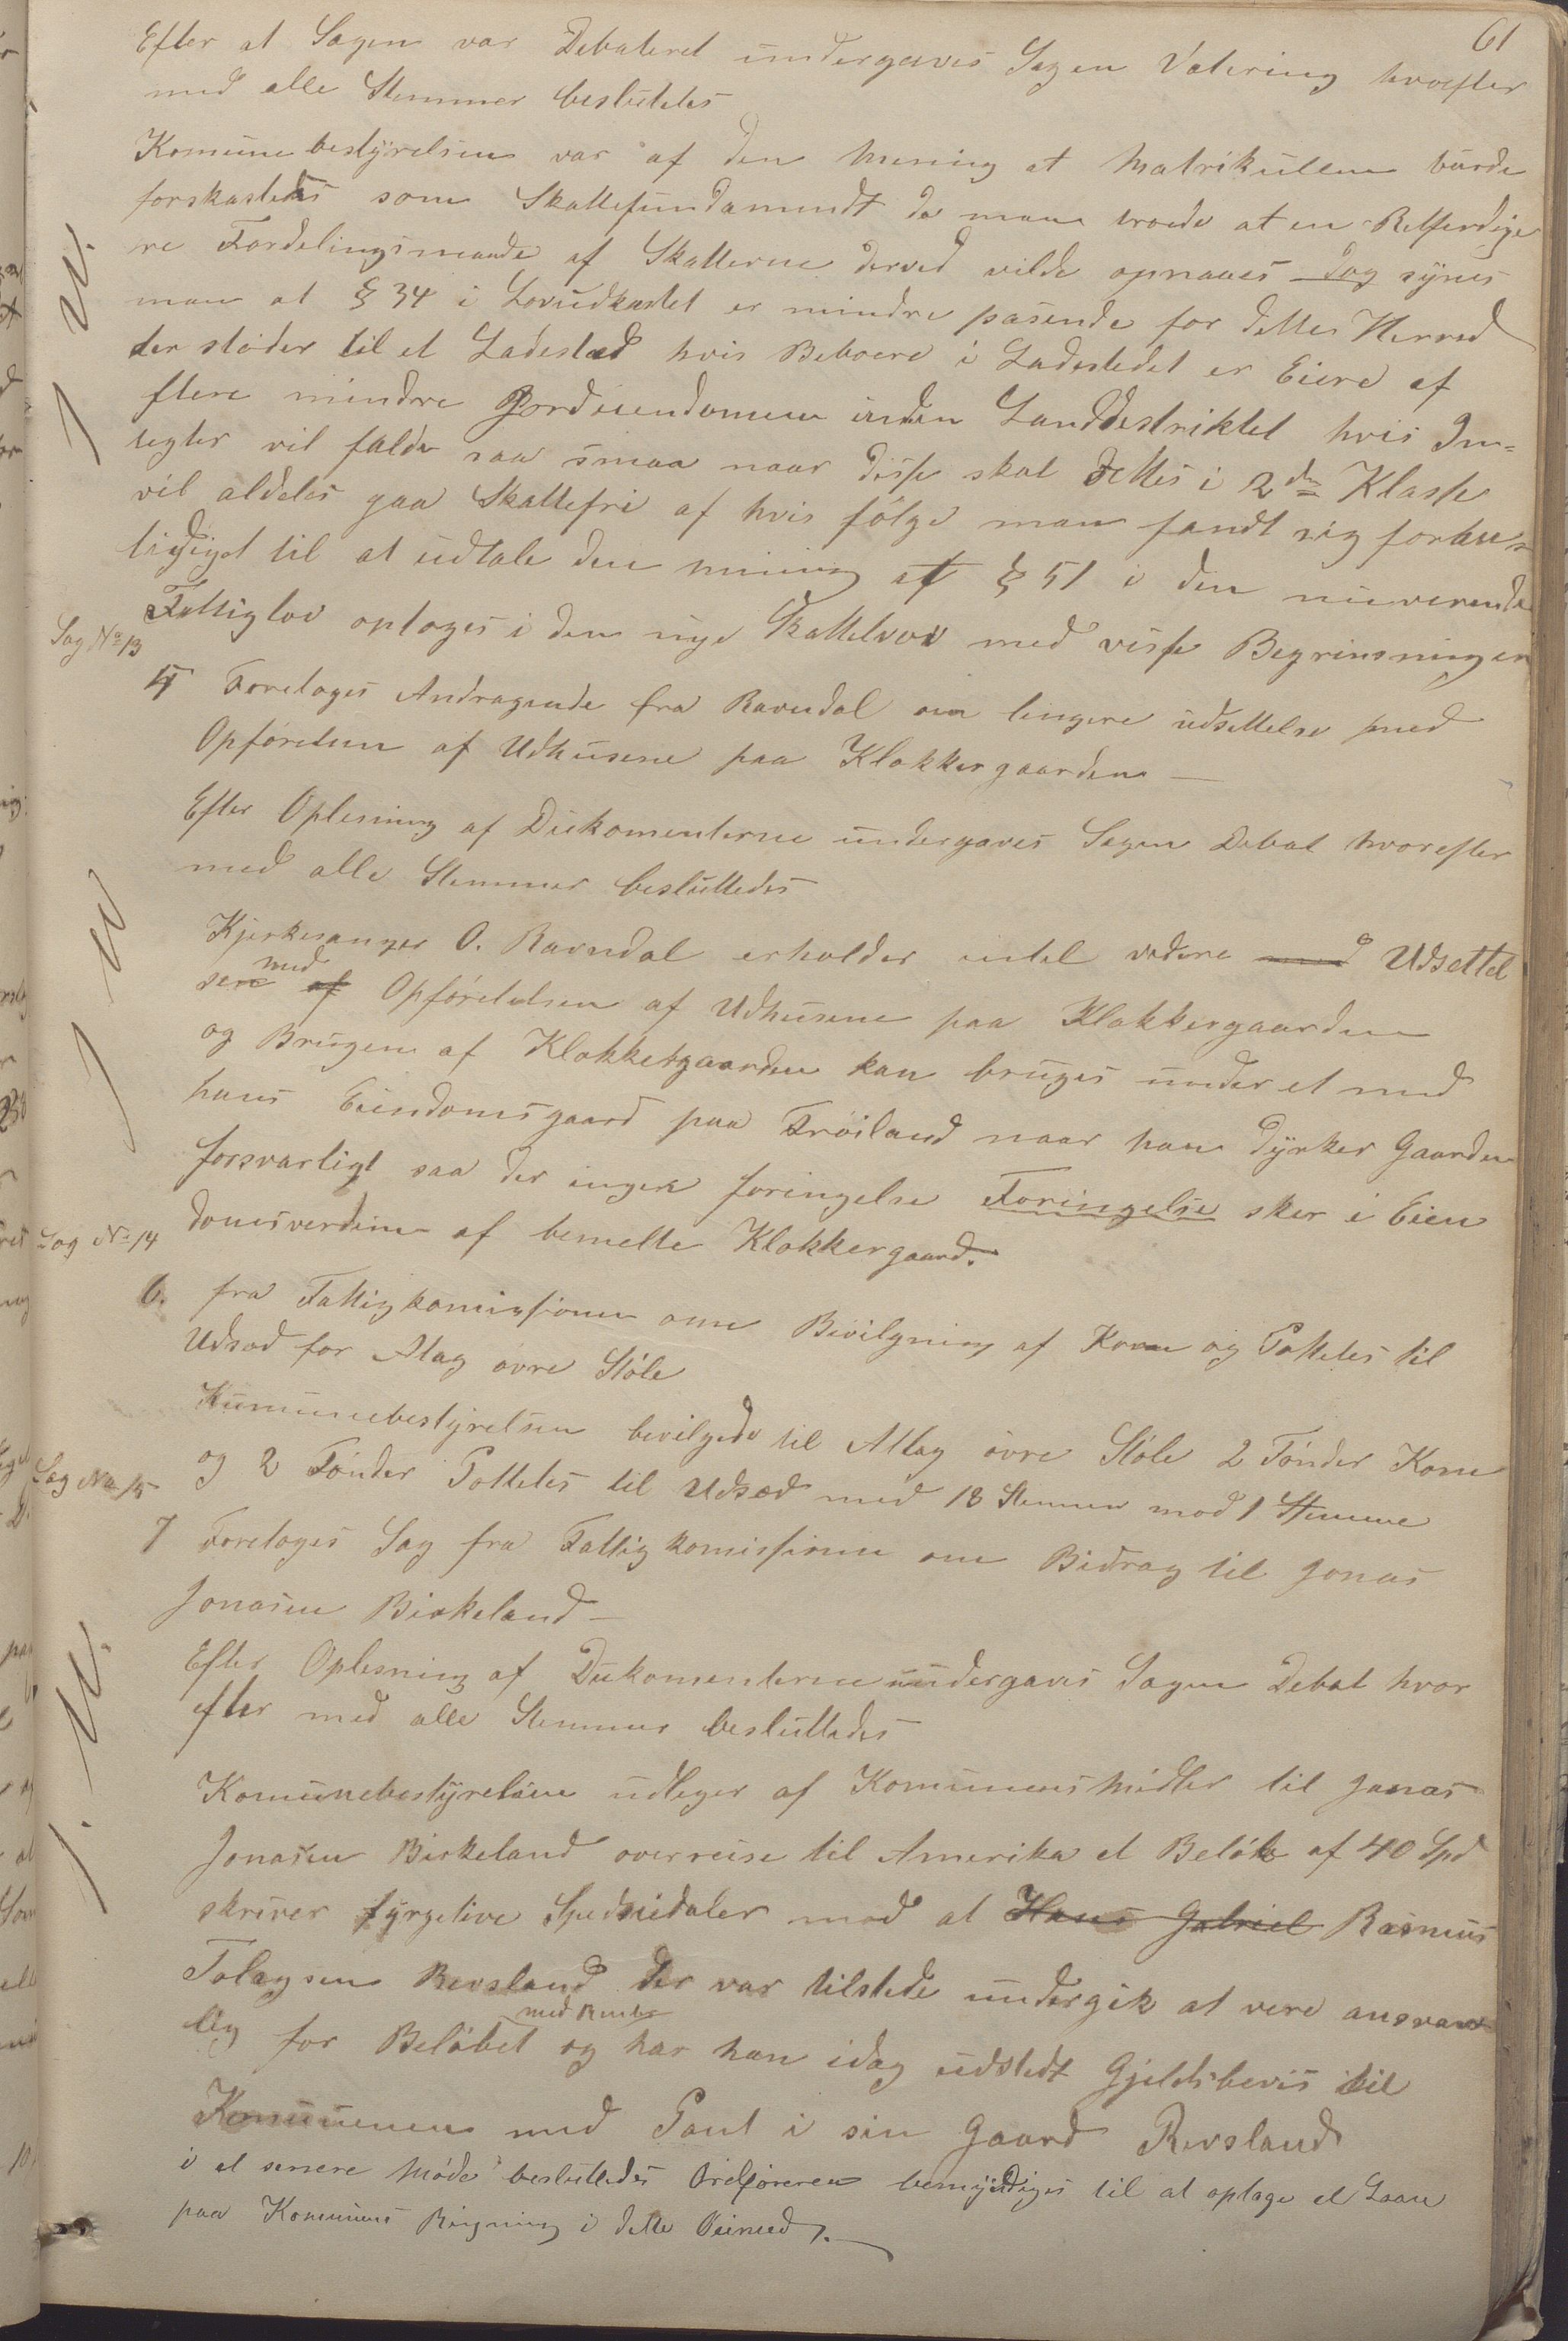 61
Efter at Sagen var Debateret undergaves Sagen Votering hvorefter
med alle Stemmer beslutetes
Komunebestyrelsen var af den mening at Matrikullen burde
forskastedes som Skattefundamendt da man troede at en Retferdige
re Fordelingsmaade af Skatterne derved vilde opnaaes dog synes
man at § 34 i Lovudkastet er mindre pasende for dettes Herred
der støder til et Ladested hvis Beboere i Ladestedet er Eiere af
flere mindre Jordeiendomme inden Landdestriktet hvis In=
tegter vil falde saa smaa naar disse skal settes i 2den Klasse
vil aldeles gaa Skattefri af hvis følge man fandt sig foran
ledigiget til at udtale den mening at § 51 i den nuverende
Fattiglov optoges i den nye Skattelov med visse Begrinsninger
Sag No 13
5 Foretoges Andragende fra Ravndal om lengere udsettelse med
Opførelsen af Udhusene paa Klokkergaarden —
Efter Oplesning af Dukomenterne undergaves Sagen Debat hvorefter
med alle Stemmer besluttedes
Kjerkesanger O. Ravndal erholder intel videre med Udsettel
sen af med Opførelelsen af Udhusene paa Klokkergaarden
og Brugen af Klokkergaarden kan bruges under et med
hans Eiendomsgaard paa Frøiland naar han dyrker Gaarden
forsvarligt saa der ingen foringelse Foringelse sker i Eien
domsverdien af bemelte Klokkergaard.
Sag No 14
6. fra Fattigkomissionen om Bevilgning af Korn og Potetes til
Udsæd for Atlag øvre Støle
Kumunebestyrelsen bevilgede til Atlag øvre Støle 2 Tønder Korn
og 2 Tønder Potetes til Udsæd med 18 Stemmer mod 1 Stemme
Sag No 15
7 Foretoges Sag fra Fattigkomissionen om Bidrag til Jonas
Jonasen Birkeland —
Efter Oplesning af Dukomenterne undergaves Sagen Debat hvor
efter med alle Stemmer besluttedes
Komunebestyrelsen udleger af Komunens Midler til Jonas
Jonasen Birkeland overreise til Amerika et Beløb af 40 Spd
skriver fyrgetive Speidsiedaler mod at Hans Gabriel Rasmus
Tolagsen Revsland der var tilstede undergik at vere ansvar
lig for Beløbet med Renter og har han idag udstedt Gjeldsbevis til
Komunen med Pant i sin Gaard Revsland
i et senere Møde besluttedes Ordføreren bemyndiges til at optage et Laan
paa Komunens Regning i dette Øiemed.